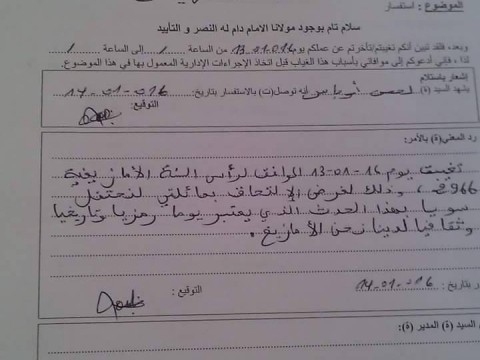 الموضوع : استفسار
سلام تام بوجود مولانا الامام دام له النصر و التأييد
وبعد، فلقد تبين أنكم تغيبتم/تأخرتم عن عملكم يوم 13.01.016 من الساعة / إلى الساعة /
لذا ، فإني أدعوكم إلى موافاتي بأسباب هذا الغياب قبل اتخاذ الإجراءات الإدارية المعمول بها في هذا الموضوع.
إشعار باستلام
يشهد السيد (ة) لحسن أنه توصل(ت) بالاستفسار بتاريخ: 14-01-016
التوقيع:
رد المعني(ة) بالأمر:
تغيبت يوم 16-01-13 الموافق لرأس السنة الأمازيغية
2966 ، وذلك لغرض الإلتحاق بعائلتي لنحتفل
سويا بهذا الحدث الذي يعتبر يوما رمزيا وتاريخيا
وثقافيا لدينا نحن الأمازيغ .
بتاريخ : 14-01-016
التوقيع :
السيد (ة) المدير (ة):